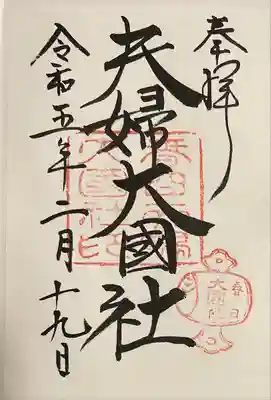 奉拝
夫婦大國社
令和五年二月十九日
春日
大國社